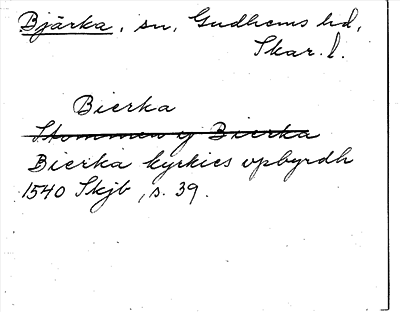 Bjärka, sn, Gudhems hd,
Skar. l.
Bierka
Stommen ӱ Bierka
Bierka kyrkies vpbyrdh
1540 Skjb, s. 39.